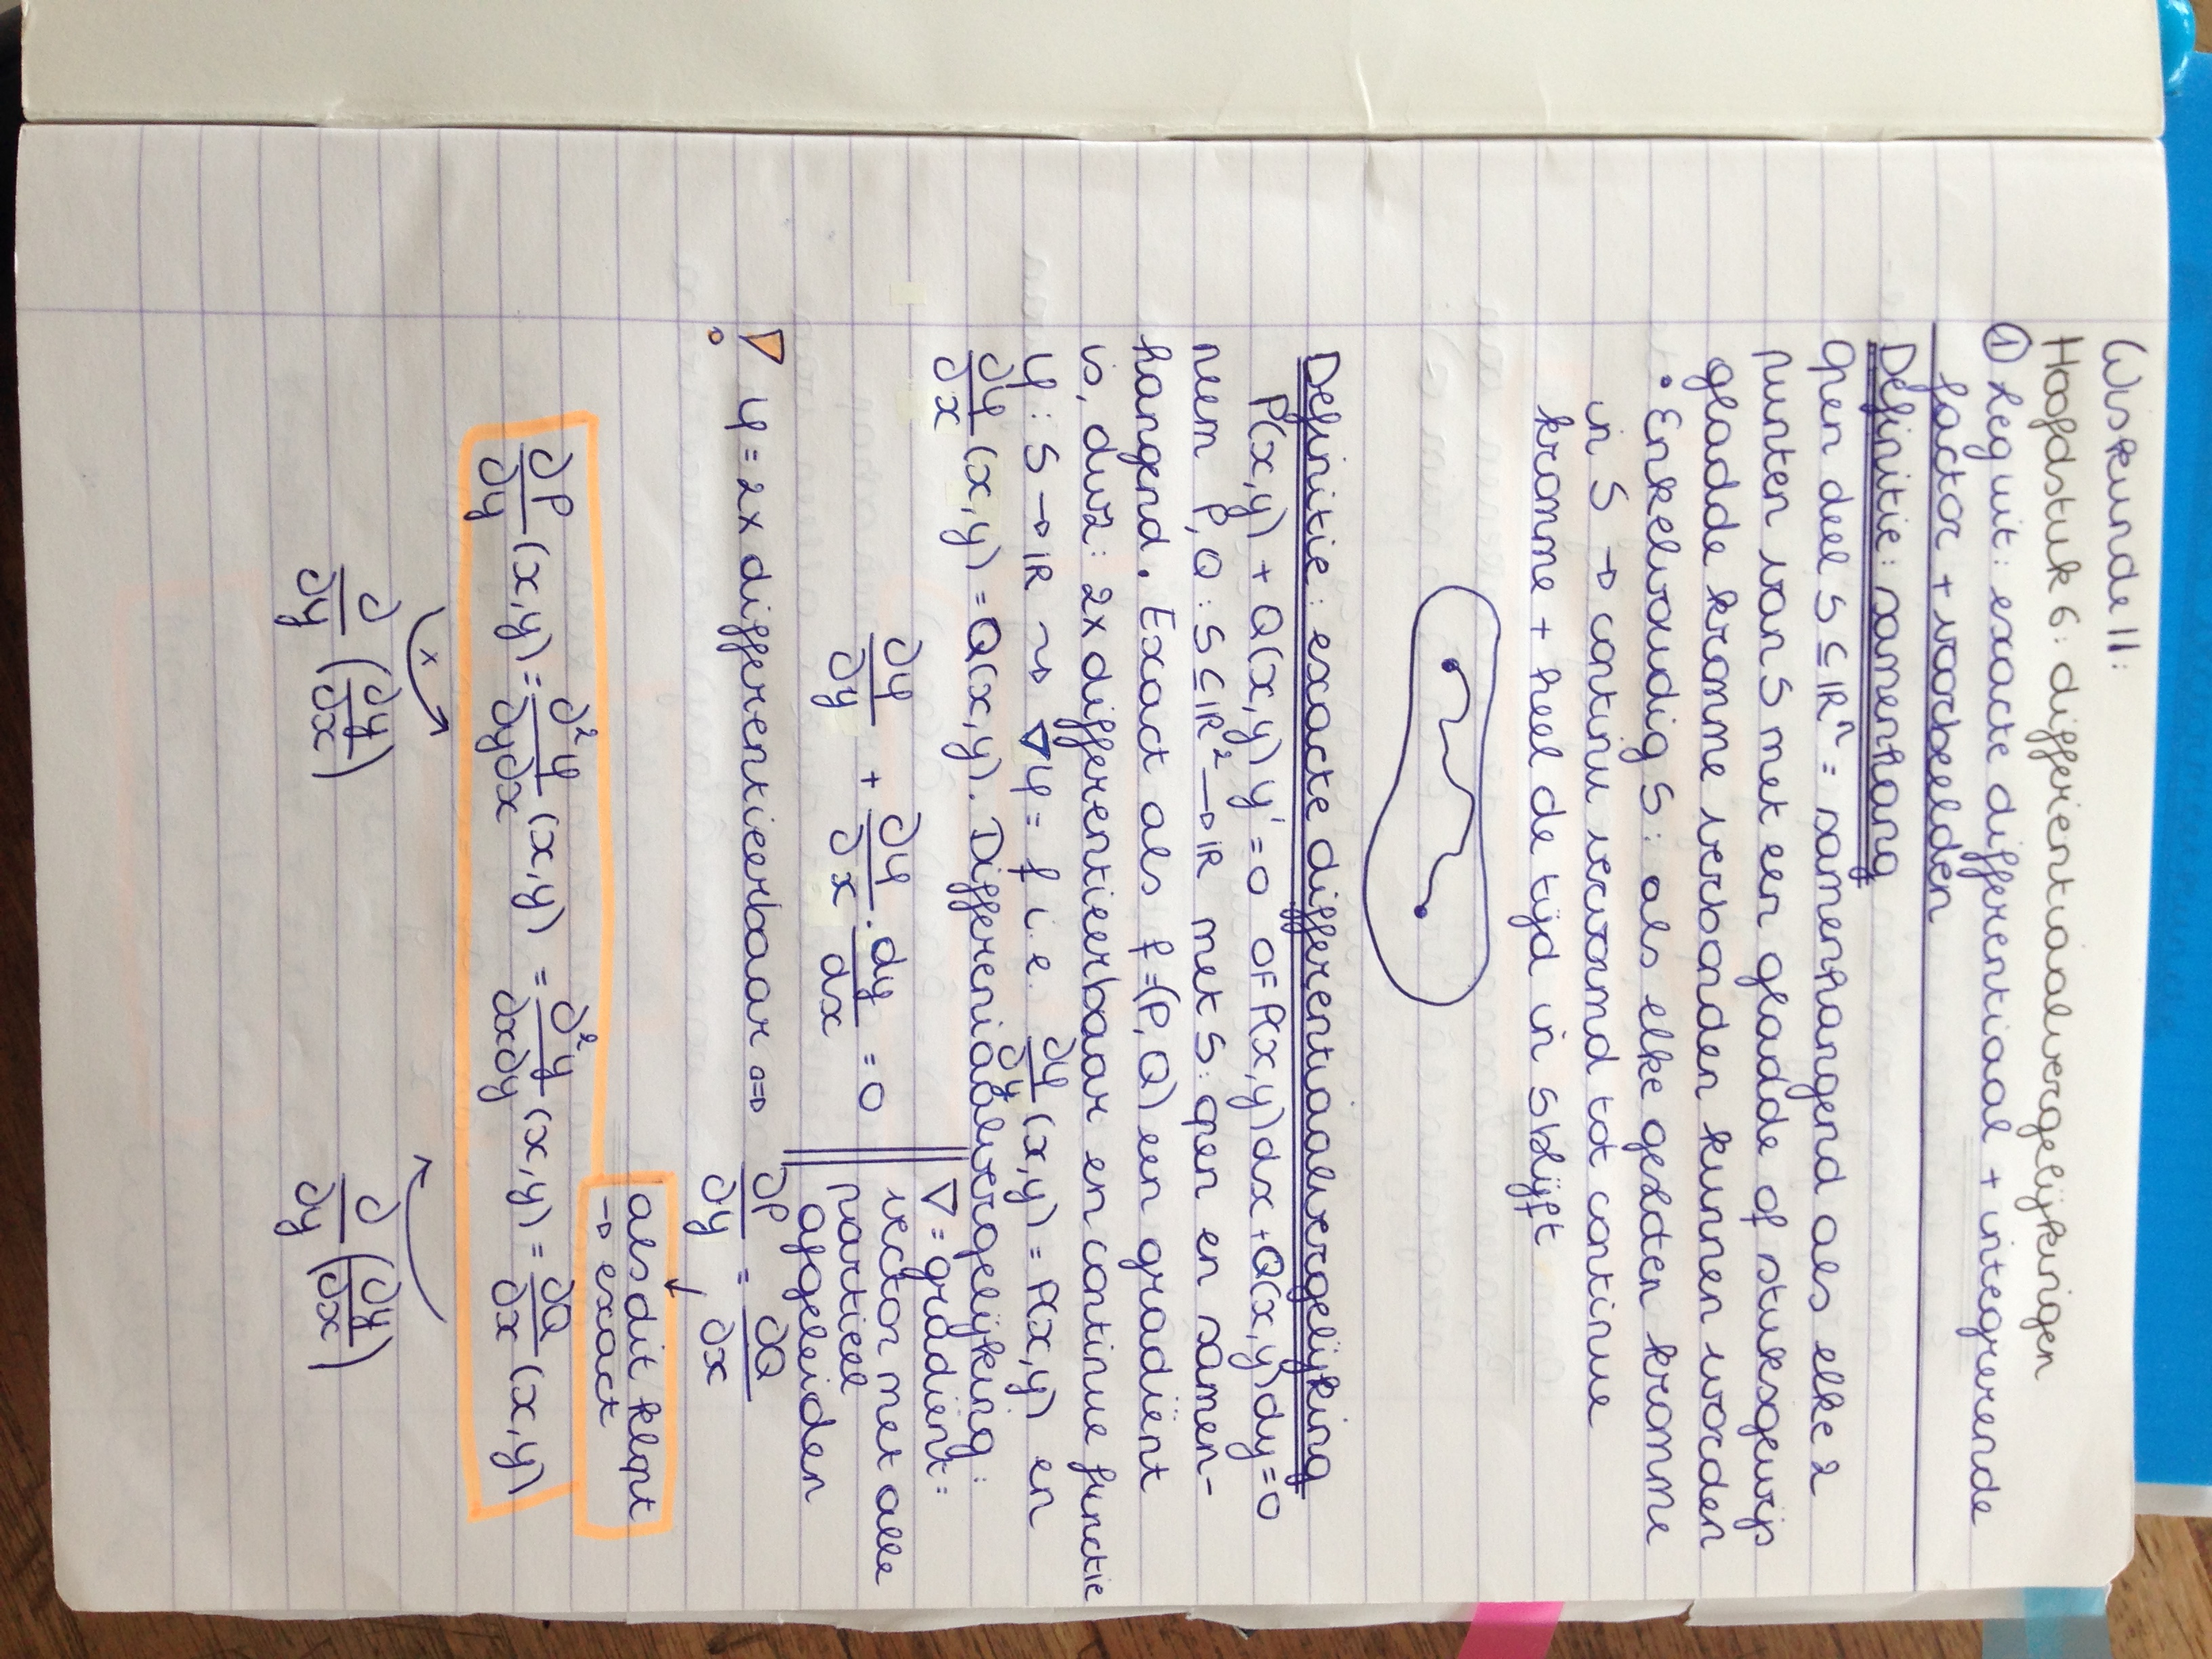 Wiskunde II:
Hoofdstuk 6: differentiaalvergelijkingen
① Leg uit: exacte differentiaal + integrerende
factor + voorbeelden
Definitie: samenhang
Open deel S ⊆ ℝⁿ = samenhangend als elke 2
punten van S met een gladde of stuksgewijs
gladde kromme verbonden kunnen worden
• Enkelvoudig S: als elke gesloten kromme
in S → continu vervormd tot continue
kromme + heel de tijd in S blijft
Definitie: exacte differentiaalvergelijking
P(x,y) + Q(x,y) y' = 0 OF P(x,y)dx + Q(x,y)dy = 0
neem P, Q : S ⊆ ℝ² → ℝ met S: open en samen-
hangend. Exact als f = (P, Q) een gradiënt
is, dwz: 2x differentieerbaar en continue functie
φ : S → ℝ ⇝ ∇φ = f i.e. ∂φ/∂y (x,y) = P(x,y) en
∂φ/∂x (x,y) = Q(x,y). Differeniaalvergelijking:
∂φ/∂y + ∂φ/∂x · dy/dx = 0
∇ = gradiënt =
vector met alle
partieel
afgeleiden
! φ = 2x differentieerbaar ⇔ ∂P/∂y = ∂Q/∂x
↓
als dit klopt
→ exact
∂P/∂y (x,y) = ∂²φ/∂y∂x (x,y) = ∂²y/∂x∂y (x,y) = ∂Q/∂x (x,y)
x
∂/∂y (∂y/∂x) ∂/∂y (∂y/∂x)